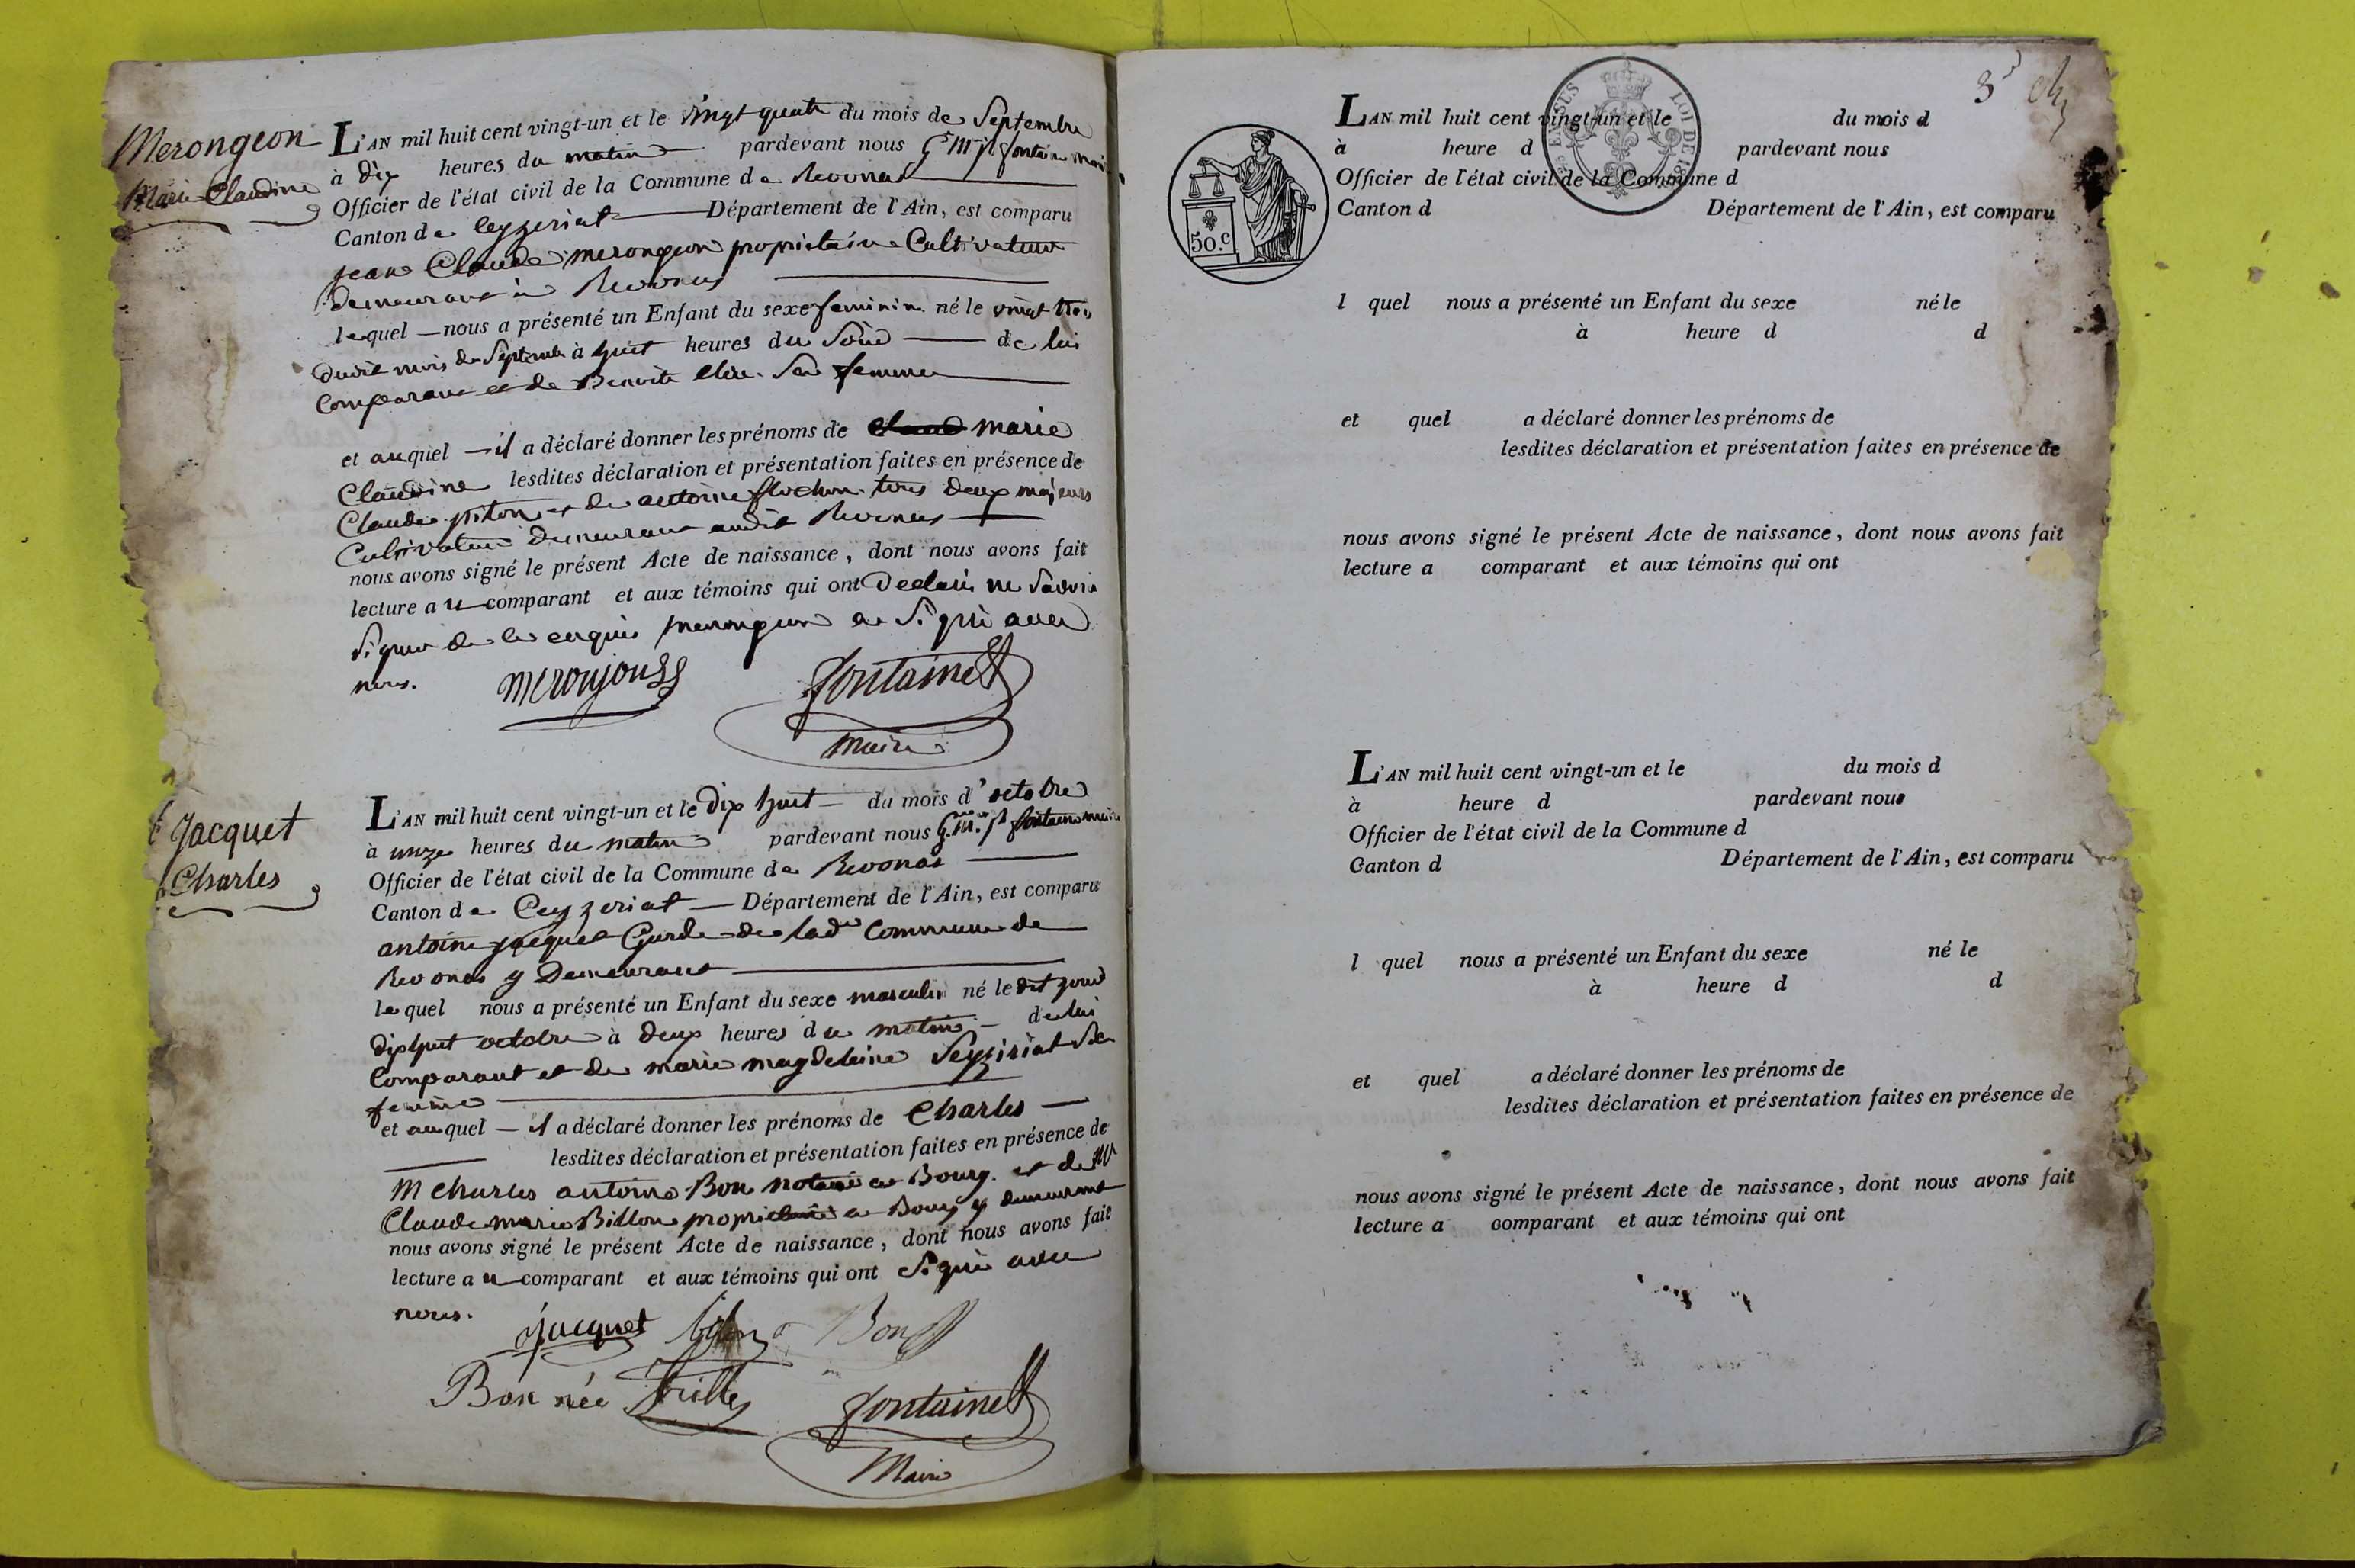 Merongeon
Marie Claudine
L'AN mil huit cent vingt-un et le vingt quatre du mois de Septembre
à dix heures du matin pardevant nous fontaine maire
Officier de l'état civil de la Commune de Revonas
Canton de Ceyzeriat Département de l'Ain, est comparu
jean Claude merongeon proprietaire Cultivateur
demeurant à Revonas
lequel nous a présenté un Enfant du sexe feminin né le vingt trois
dudit mois de Septembre à huit heures du Soir de lui
Comparant et de Benoite sa femme
et auquel il a déclaré donner les prénoms de marie
Claudine lesdites déclaration et présentation faites en présence de
Claude piton et de antoine tous deux majeurs
Cultivateurs demeurant audit Revonas
nous avons signé le présent Acte de naissance, dont nous avons fait
lecture au comparant et aux témoins qui ont Declaré ne Savoir
Signer de ce enquis merongeon a Signé avec
nous.
meronjon fontaine
Maire
Jacquet
Charles
L'AN mil huit cent vingt-un et le dix huit du mois d'octobre
à onze heures du matin pardevant nous fontaine maire
Officier de l'état civil de la Commune de Revonas
Canton de Ceyzeriat Département de l'Ain, est comparu
antoine jacquet Garde de lade Commune de
Revonas y Demeurant
lequel nous a présenté un Enfant du sexe masculin né le dit jour
dixhuit octobre à deux heures du matin de lui
Comparant et de marie magdeleine Seyziriat Sa
femme
et auquel il a déclaré donner les prénoms de Charles
lesdites déclaration et présentation faites en présence de
M Charles antoine Bon notaire a Bourg. et de Mr
Claude marie Billon propriétaire a Bourg y demeurant
nous avons signé le présent Acte de naissance, dont nous avons fait
lecture au comparant et aux témoins qui ont Signé avec
nous.
Jacquet Bon
Bon née fontaine
Maire
3
50.c
LOI DE
L'AN mil huit cent vingt-un et le du mois d
à heure d pardevant nous
Officier de l'état civil de la Commune d
Canton d Département de l'Ain, est comparu
l quel nous a présenté un Enfant du sexe né le
à heure d d
et quel a déclaré donner les prénoms de
lesdites déclaration et présentation faites en présence de
nous avons signé le présent Acte de naissance, dont nous avons fait
lecture a comparant et aux témoins qui ont
L'AN mil huit cent vingt-un et le du mois d
à heure d pardevant nous
Officier de l'état civil de la Commune d
Canton d Département de l'Ain, est comparu
l quel nous a présenté un Enfant du sexe né le
à heure d d
et quel a déclaré donner les prénoms de
lesdites déclaration et présentation faites en présence de
nous avons signé le présent Acte de naissance, dont nous avons fait
lecture a comparant et aux témoins qui ont